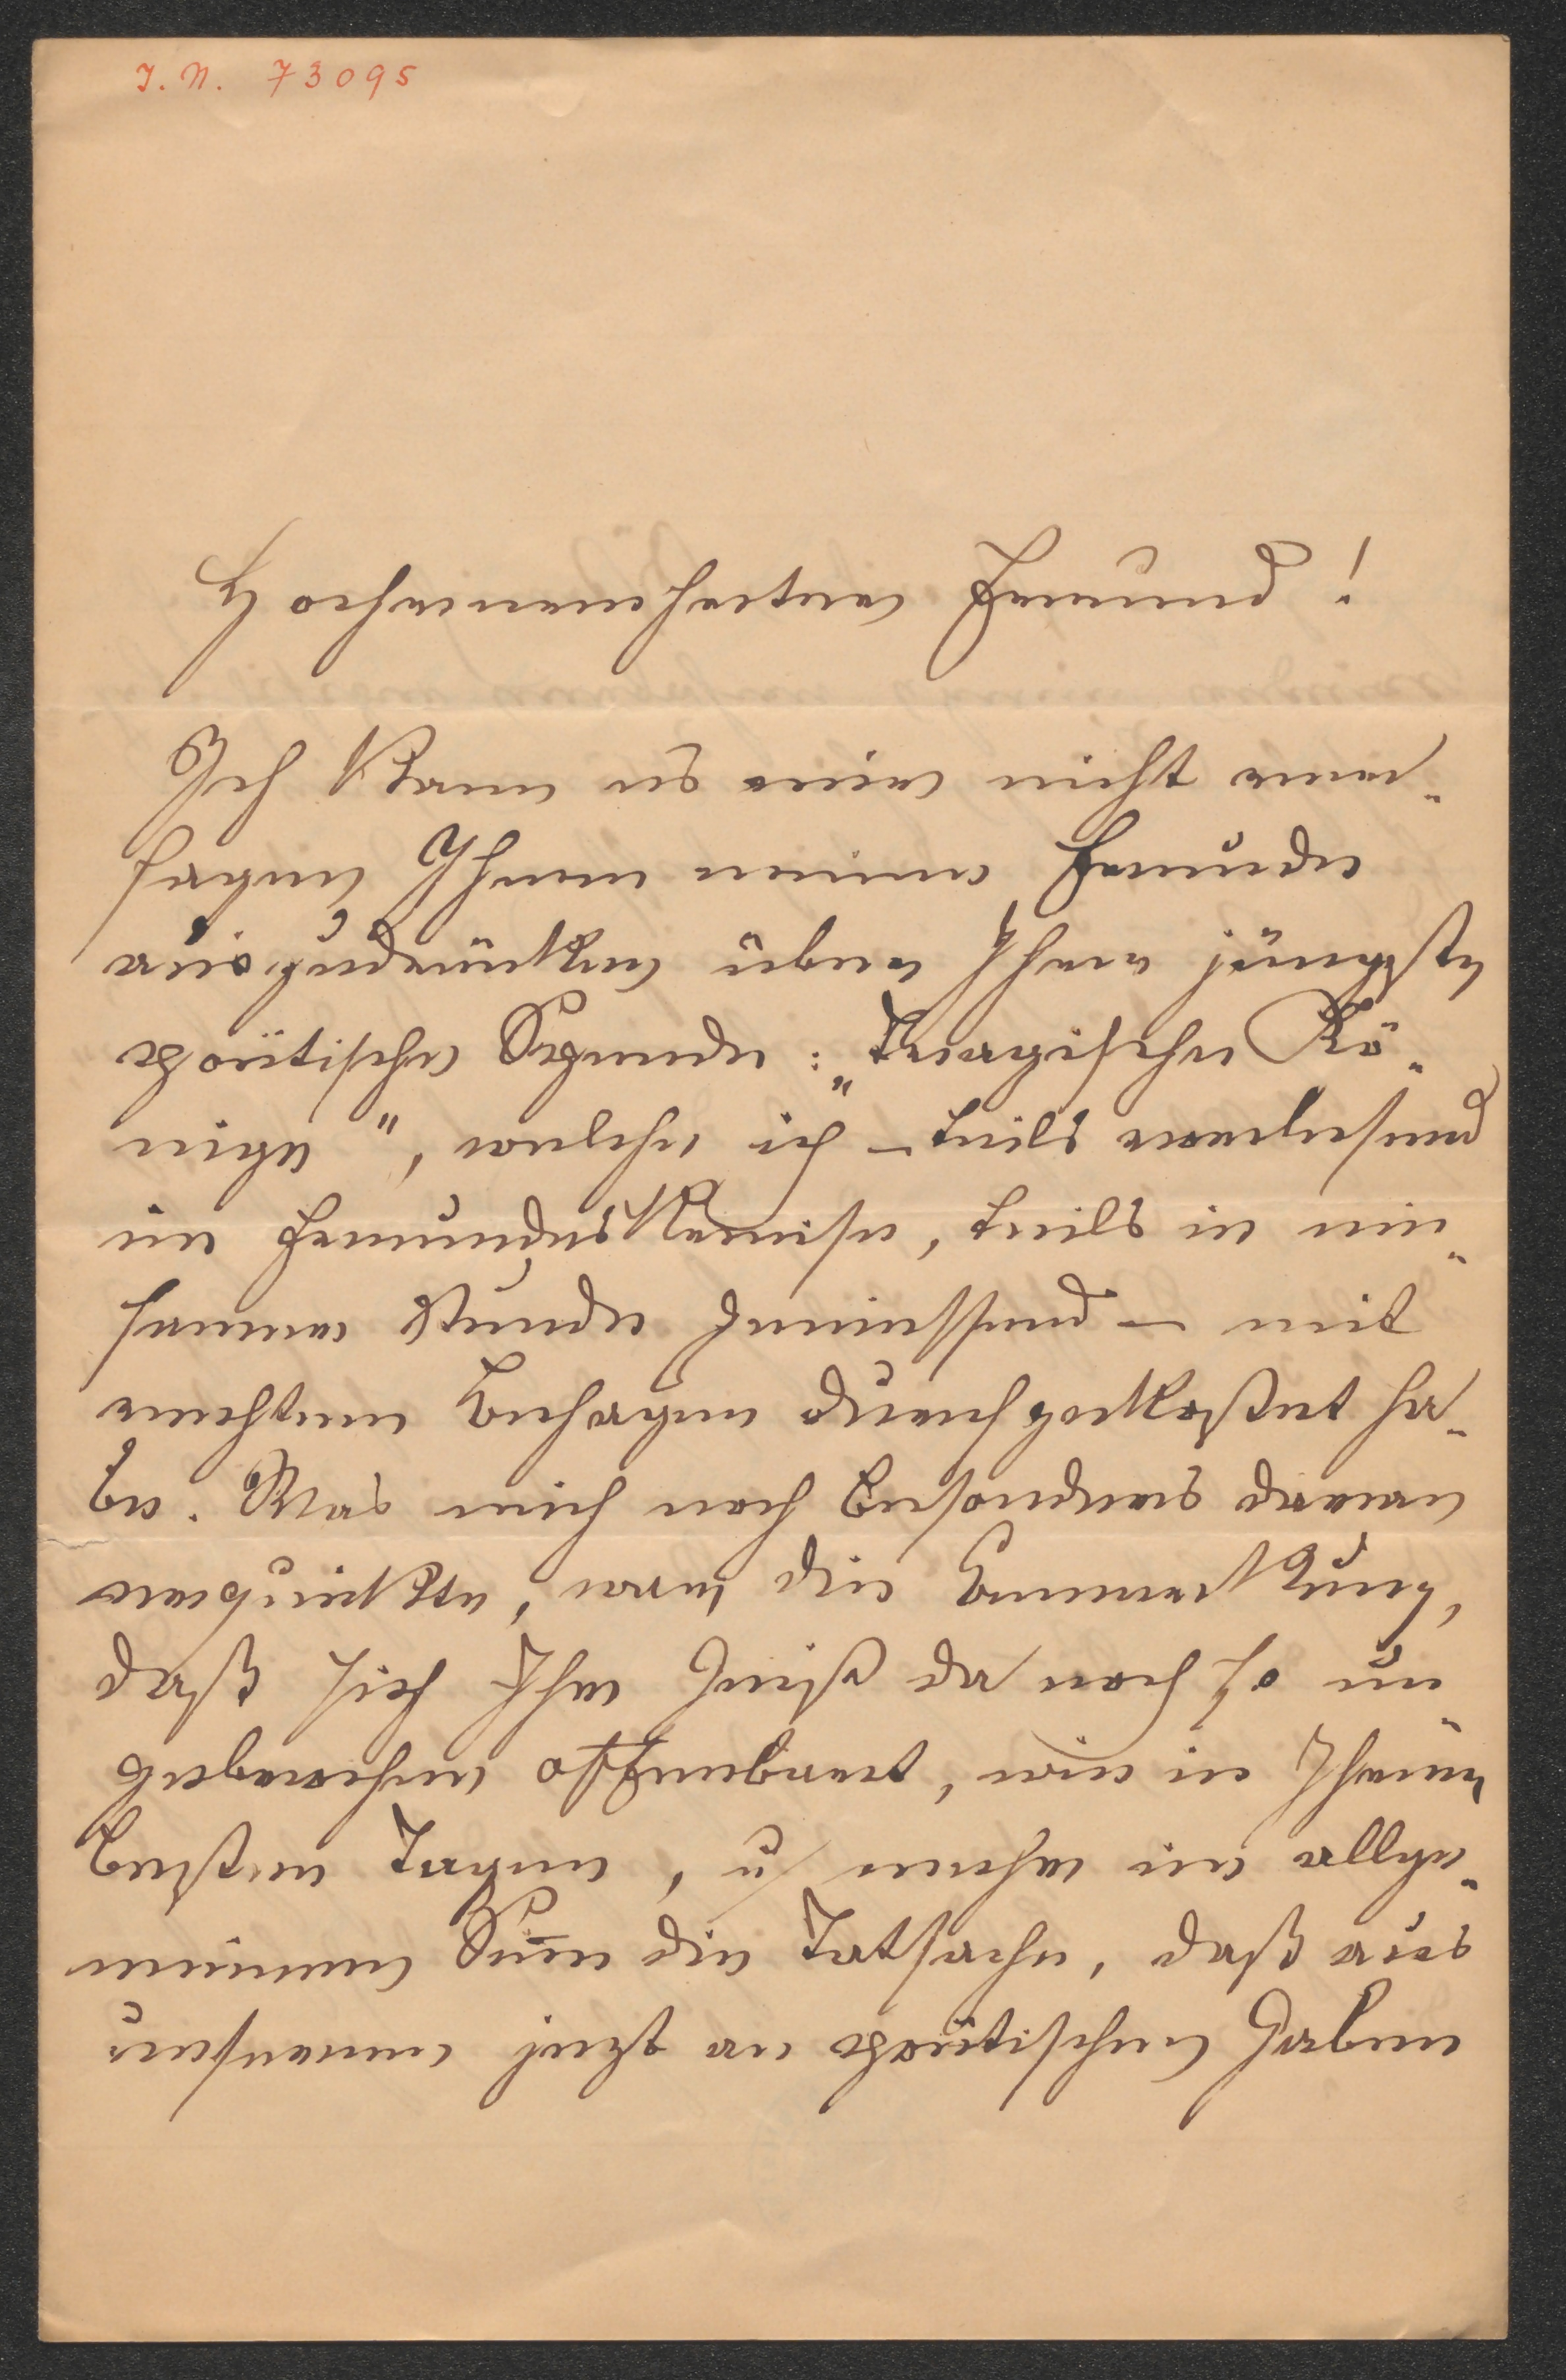 I. N. 73095
Hochverehrter Freund!
Ich kann es mir nicht ver-
sagen Ihnen meine Freude
auszudrücken über Ihre jüngste
poëtische Spende: „Tragische Kö-
nige", welche ich – teils vorlesend
im Freundeskreise, teils in ein-
samer Stunde geniessend – mit
rechtem Behagen durchgekostet ha-
be. Was mich noch besonders daran
erquickte, war die Bemerkung,
daß sich Ihr Geist da noch so un-
gebrochen offenbart, wie in Ihren
besten Tagen, u mehr im allge-
meinen Sinn die Tatsache, daß aus
unserem jezt an poëtischen Gaben